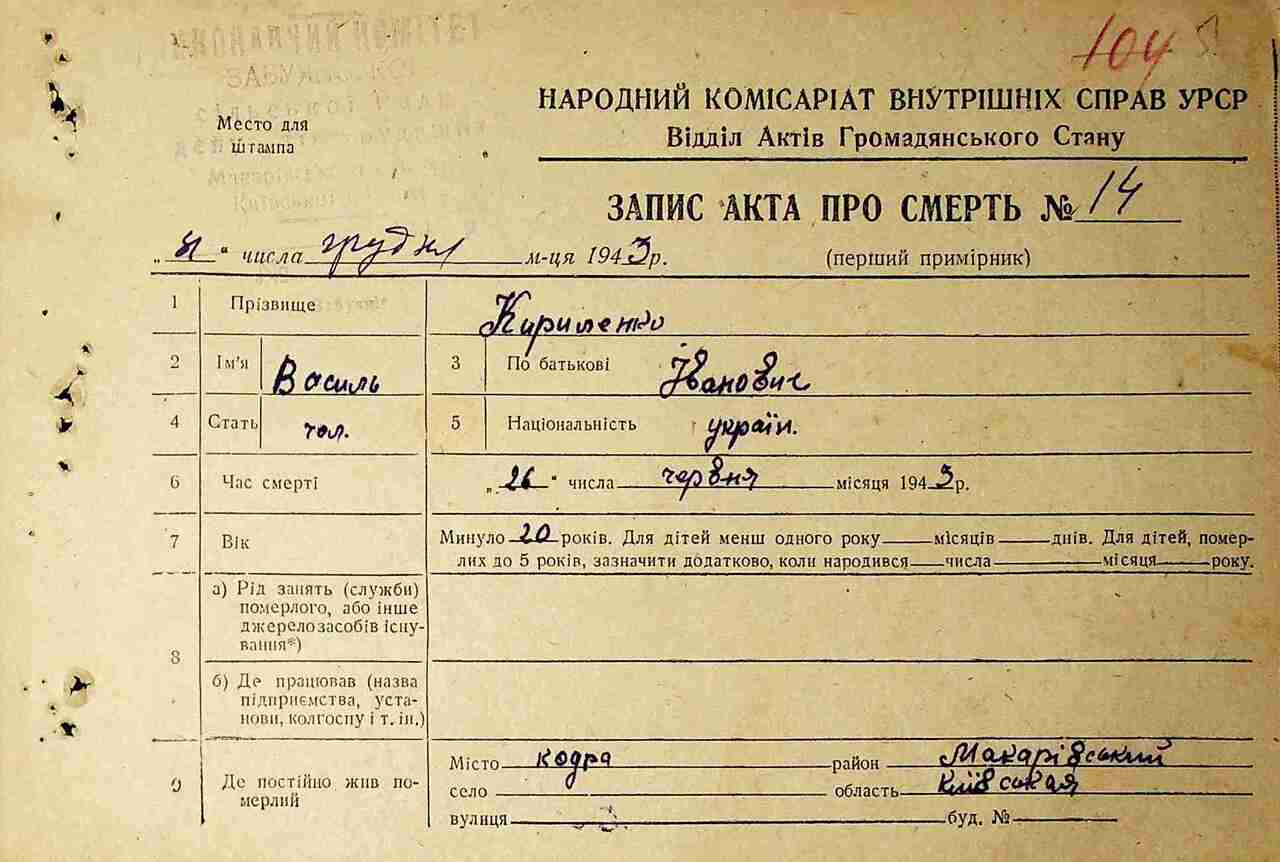 104
Место для
штампа
НАРОДНИЙ КОМІСАРІАТ ВНУТРІШНІХ СПРАВ УРСР
Відділ Актів Громадянського Стану
ЗАПИС АКТА ПРО СМЕРТЬ № 14
" " числа грудня м-ця 1943 р. (перший примірник)
1 Прізвище Кириленко
2 Ім'я Василь 3 По батькові Іванович
4 Стать чол. 5 Національність україн.
6 Час смерті „26" числа червня місяця 1943 р.
7 Вік Минуло 20 років. Для дітей менш одного року місяців днів. Для дітей, помер-
лих до 5 років, зазначити додатково, коли народився числа місяця року.
8 а) Рід занять (служби)
померлого, або інше
джерело засобів існу-
вання*)
б) Де працював (назва
підприємства, уста-
нови, колгоспу і т. ін.)
9 Де постійно жив по-
мерлий
Місто кодра район Макарівський
село область київськая
вулиця буд. №